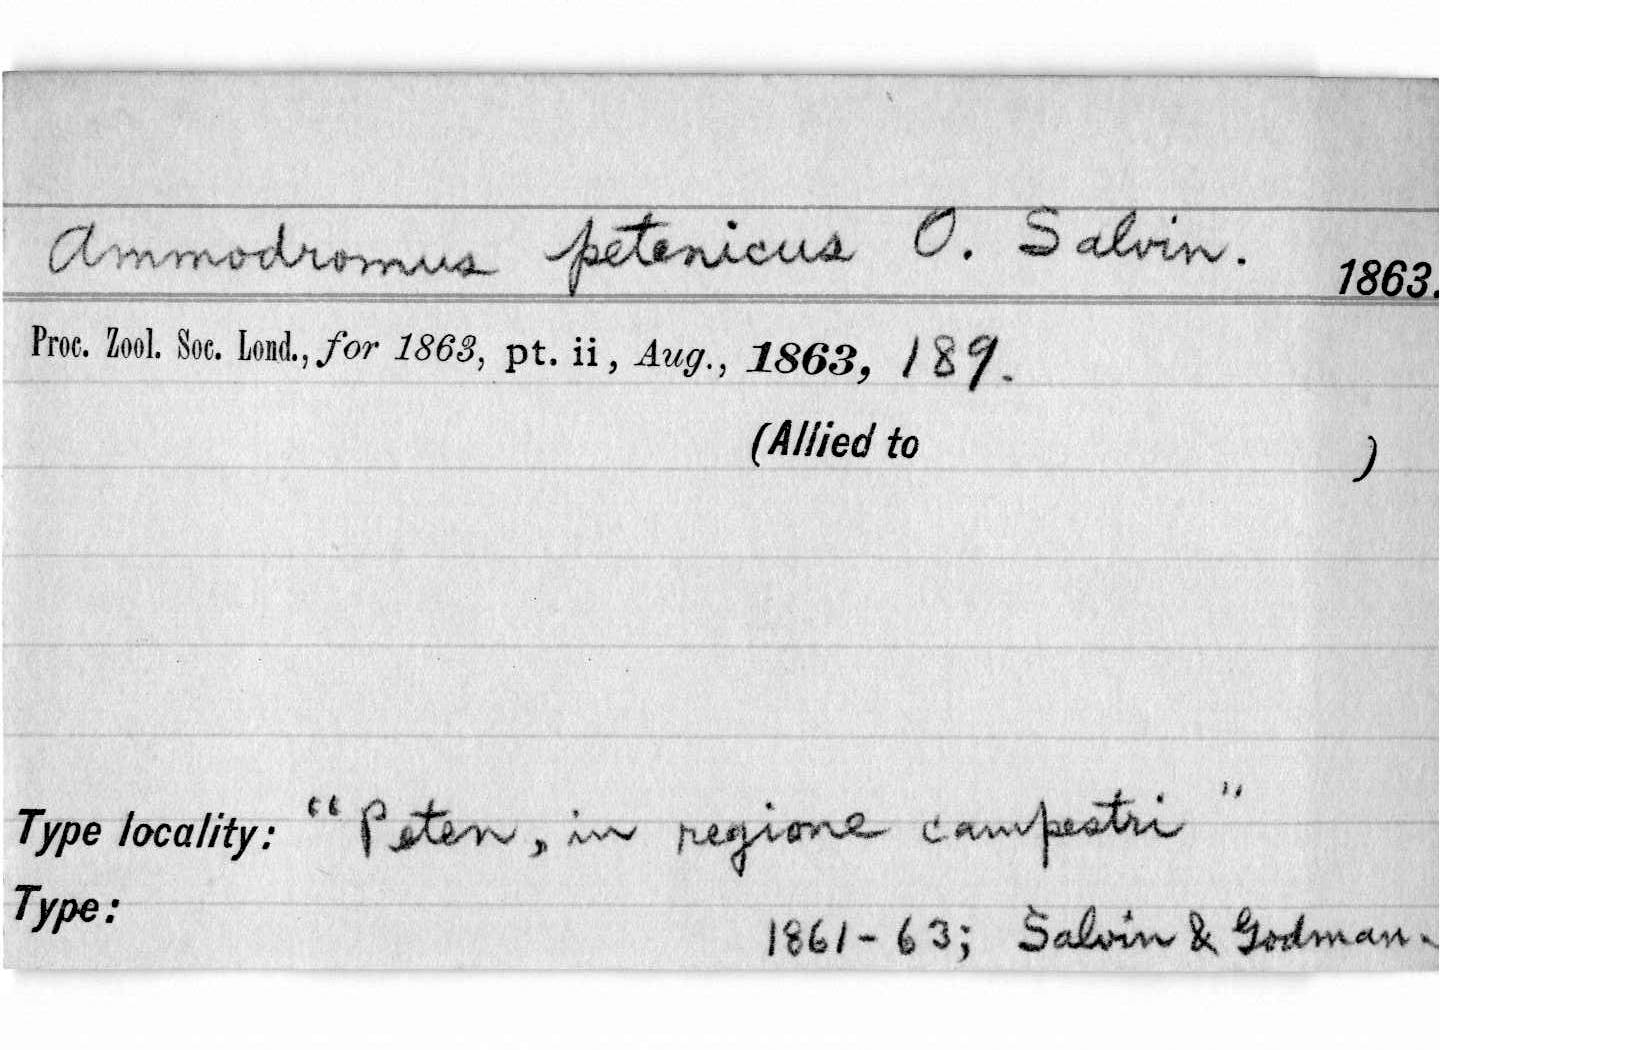 Ammodromus petenicus O. Salvin. 1863.
Proc. Zool. Soc. Lond., for 1863, pt. ii, Aug., 1863, 189.
(Allied to )
Type locality: "Peten, in regione campestri"
Type:
1861-63; Salvin & Godman.